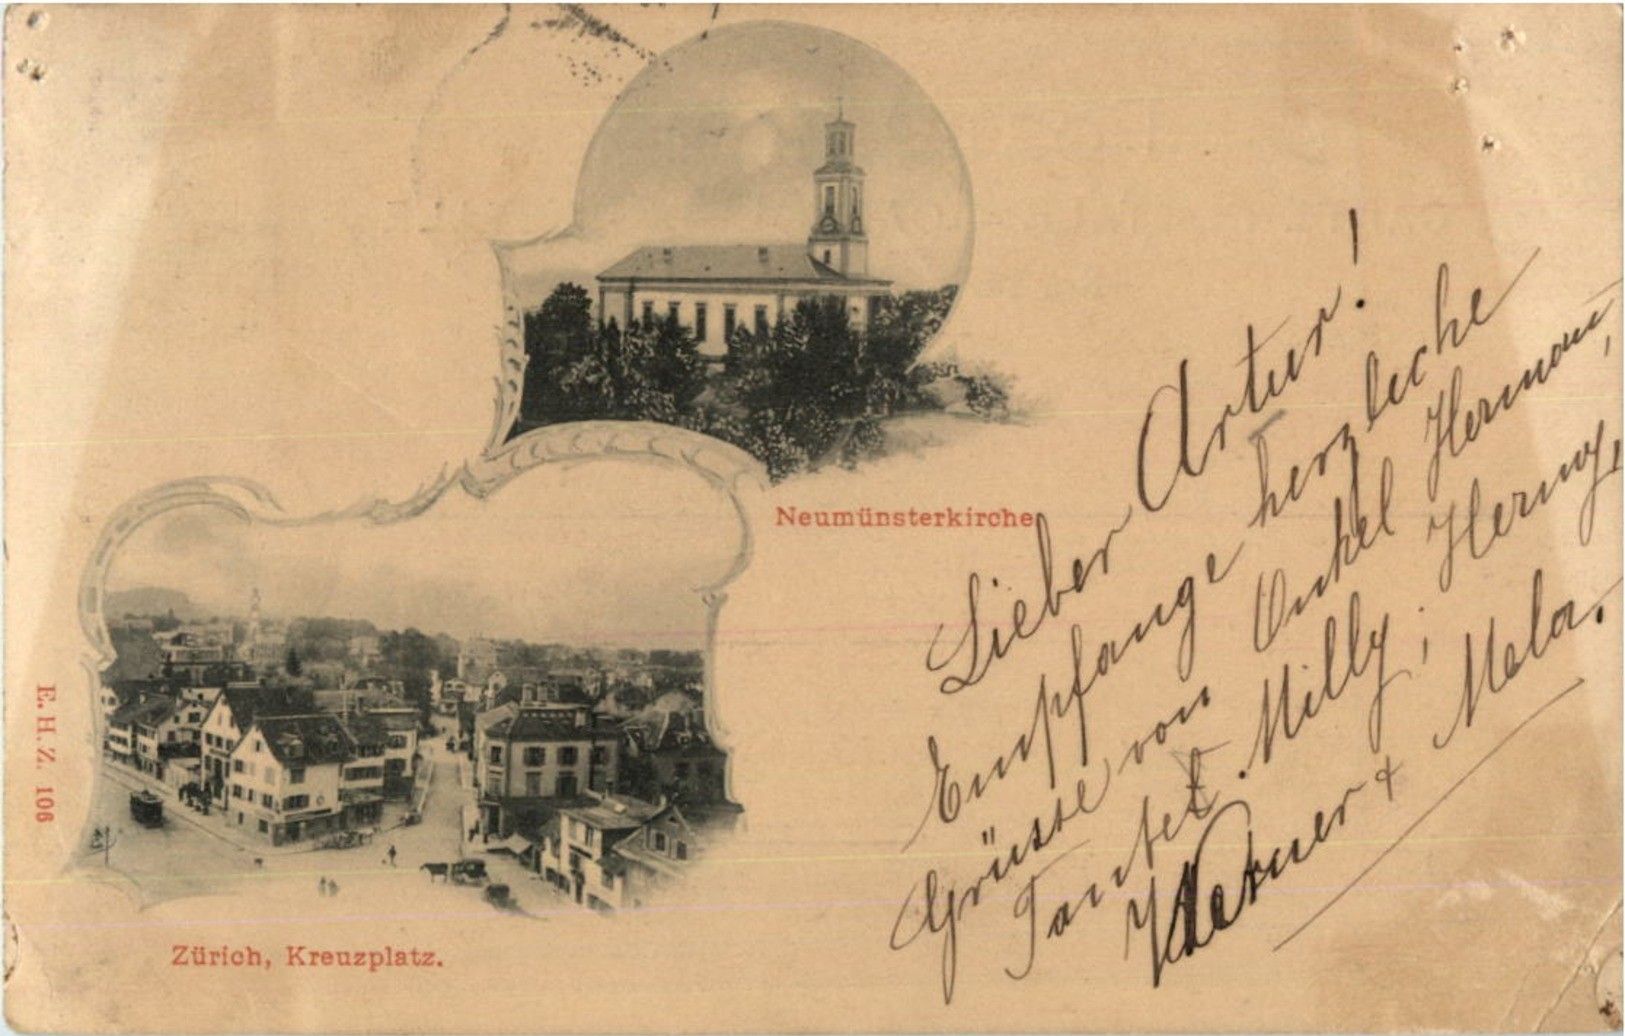 Neumünsterkirche
Zürich, Kreuzplatz.
E. H. Z. 106
Lieber Artur!
Empfange herzliche
Grüsse von Onkel Hermann,
Tante Milly; Hermy,
Werner & Mela.